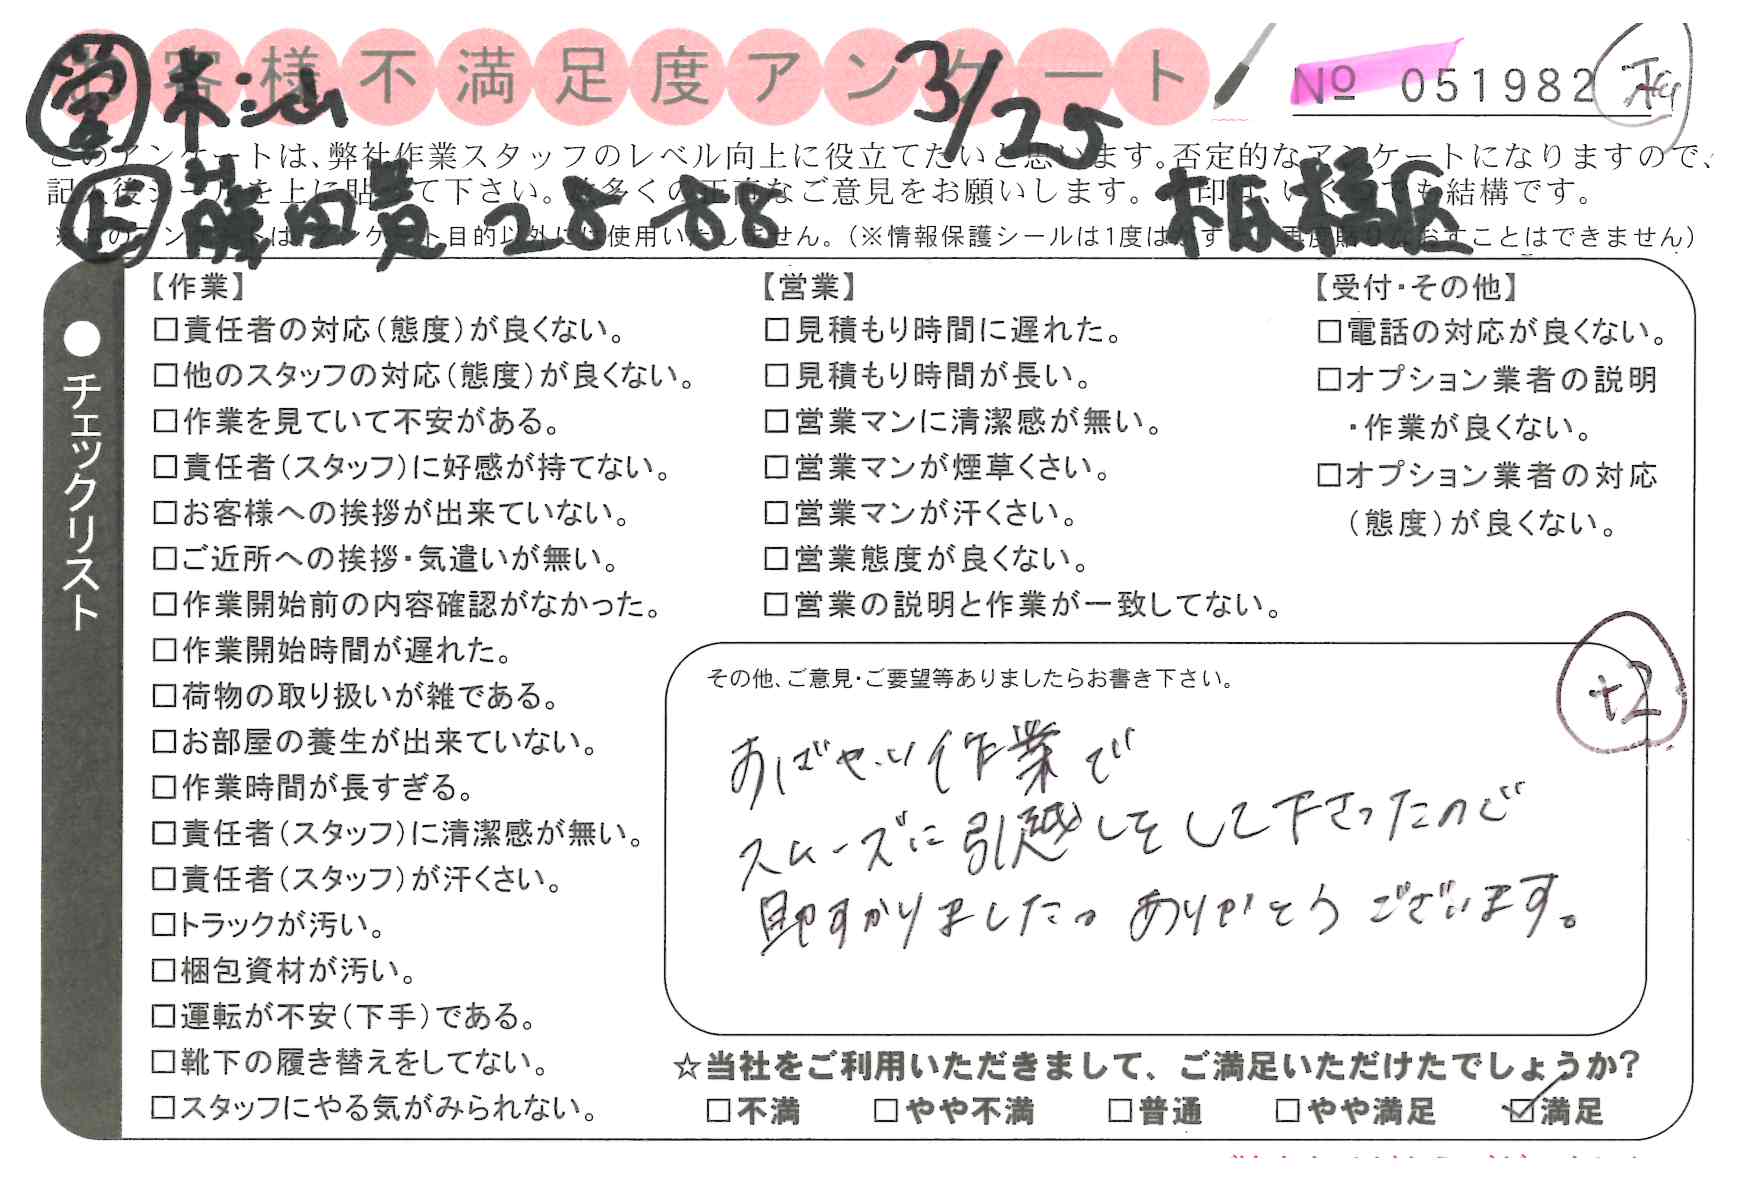 お客様不満足度アンケート
3/25
№ 051982
このアンケートは、弊社作業スタッフのレベル向上に役立てたいと思います。否定的なアンケートになりますので、
記入後シールを上に貼って下さい。数多くの正直なご意見をお願いします。✓印は、いくつでも結構です。
28-88 板橋区
※このアンケートは、アンケート目的以外には使用いたしません。(※情報保護シールは1度はがすと、再度貼りなおすことはできません)
●チェックリスト
【作業】
□責任者の対応(態度)が良くない。
□他のスタッフの対応(態度)が良くない。
□作業を見ていて不安がある。
□責任者(スタッフ)に好感が持てない。
□お客様への挨拶が出来ていない。
□ご近所への挨拶・気遣いが無い。
□作業開始前の内容確認がなかった。
□作業開始時間が遅れた。
□荷物の取り扱いが雑である。
□お部屋の養生が出来ていない。
□作業時間が長すぎる。
□責任者(スタッフ)に清潔感が無い。
□責任者(スタッフ)が汗くさい。
□トラックが汚い。
□梱包資材が汚い。
□運転が不安(下手)である。
□靴下の履き替えをしてない。
□スタッフにやる気がみられない。
【営業】
□見積もり時間に遅れた。
□見積もり時間が長い。
□営業マンに清潔感が無い。
□営業マンが煙草くさい。
□営業マンが汗くさい。
□営業態度が良くない。
□営業の説明と作業が一致してない。
【受付・その他】
□電話の対応が良くない。
□オプション業者の説明
・作業が良くない。
□オプション業者の対応
(態度)が良くない。
その他、ご意見・ご要望等ありましたらお書き下さい。
+2
すばやい作業で
スムーズに引越しをして下さったので
助かりました。ありがとうございます。
☆当社をご利用いただきまして、ご満足いただけたでしょうか?
□不満 □やや不満 □普通 □やや満足 ☑満足